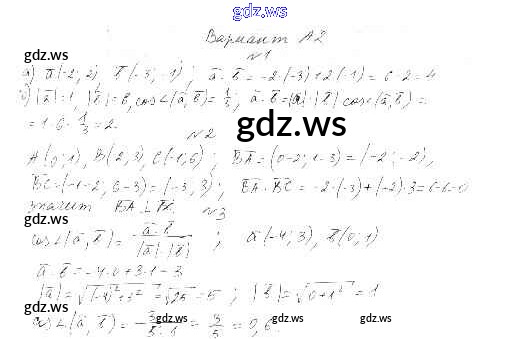 gdz.ws
Вариант А2
gdz.ws gdz.ws
№1
а) a(-2; 2), b(-3; -1); a·b = -2·(-3)+2·(-1) = 6-2 = 4
б) |a|=1, |b|=6, cos∠(a,b)=1/3; a·b=|a|·|b| cos∠(a,b) =
= 1·6·1/3 = 2.
gdz.ws
№2
A(0;1), B(2;3), C(-1;6); BA=(0-2;1-3)=(-2;-2),
BC=(-1-2; 6-3)=(-3;3); BA·BC = -2·(-3)+(-2)·3=6-6=0
значит BA⊥BC.
gdz.ws gdz.ws
№3
cos∠(a,b)= a·b / |a|·|b| ; a(-4;3), b(0;1)
a·b = -4·0+3·1=3
|a|=√(-4)²+3² = √25 = 5; |b|=√0+1² = 1
gdz.ws gdz.ws
cos∠(a,b) = 3/5·1 = 3/5 = 0,6.
gdz.ws